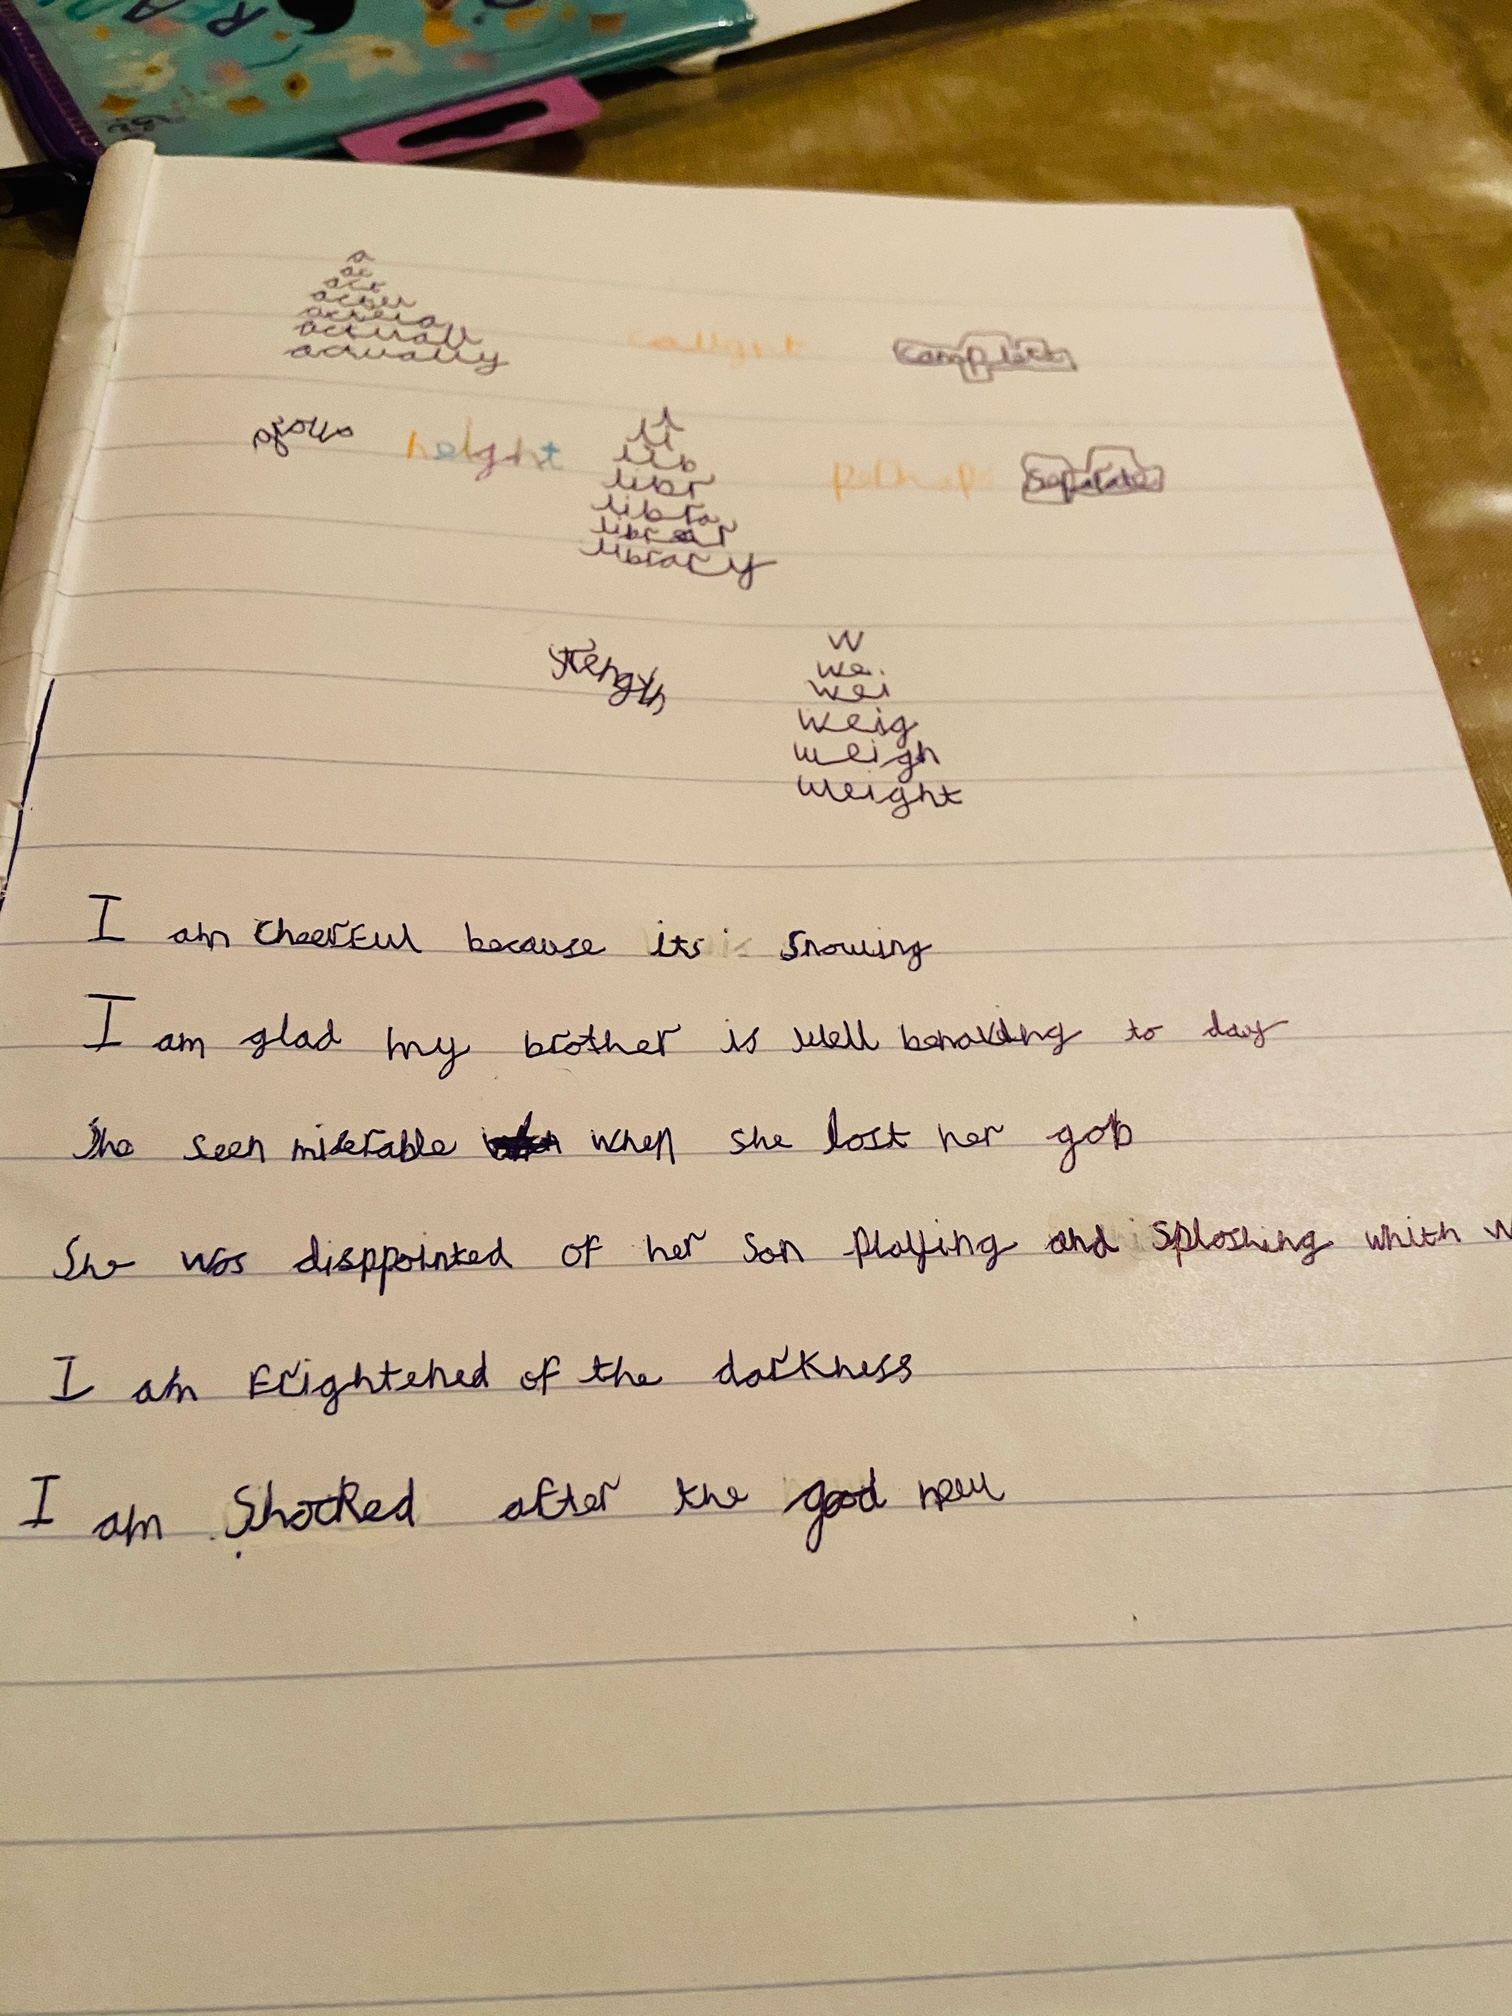 a
ac
act
actu
actua
actuall
actually
caught
complete
height
l
li
lib
libr
libra
librar
library
perhaps
separate
strength
w
we
wei
weig
weigh
weight
I am cheerful because its snowing
I am glad my brother is well behaving to day
She seen miserable when she lost her gob
She was disppointed of her son playing and sploshing whith w
I am frightened of the darkness
I am Shocked after the good new